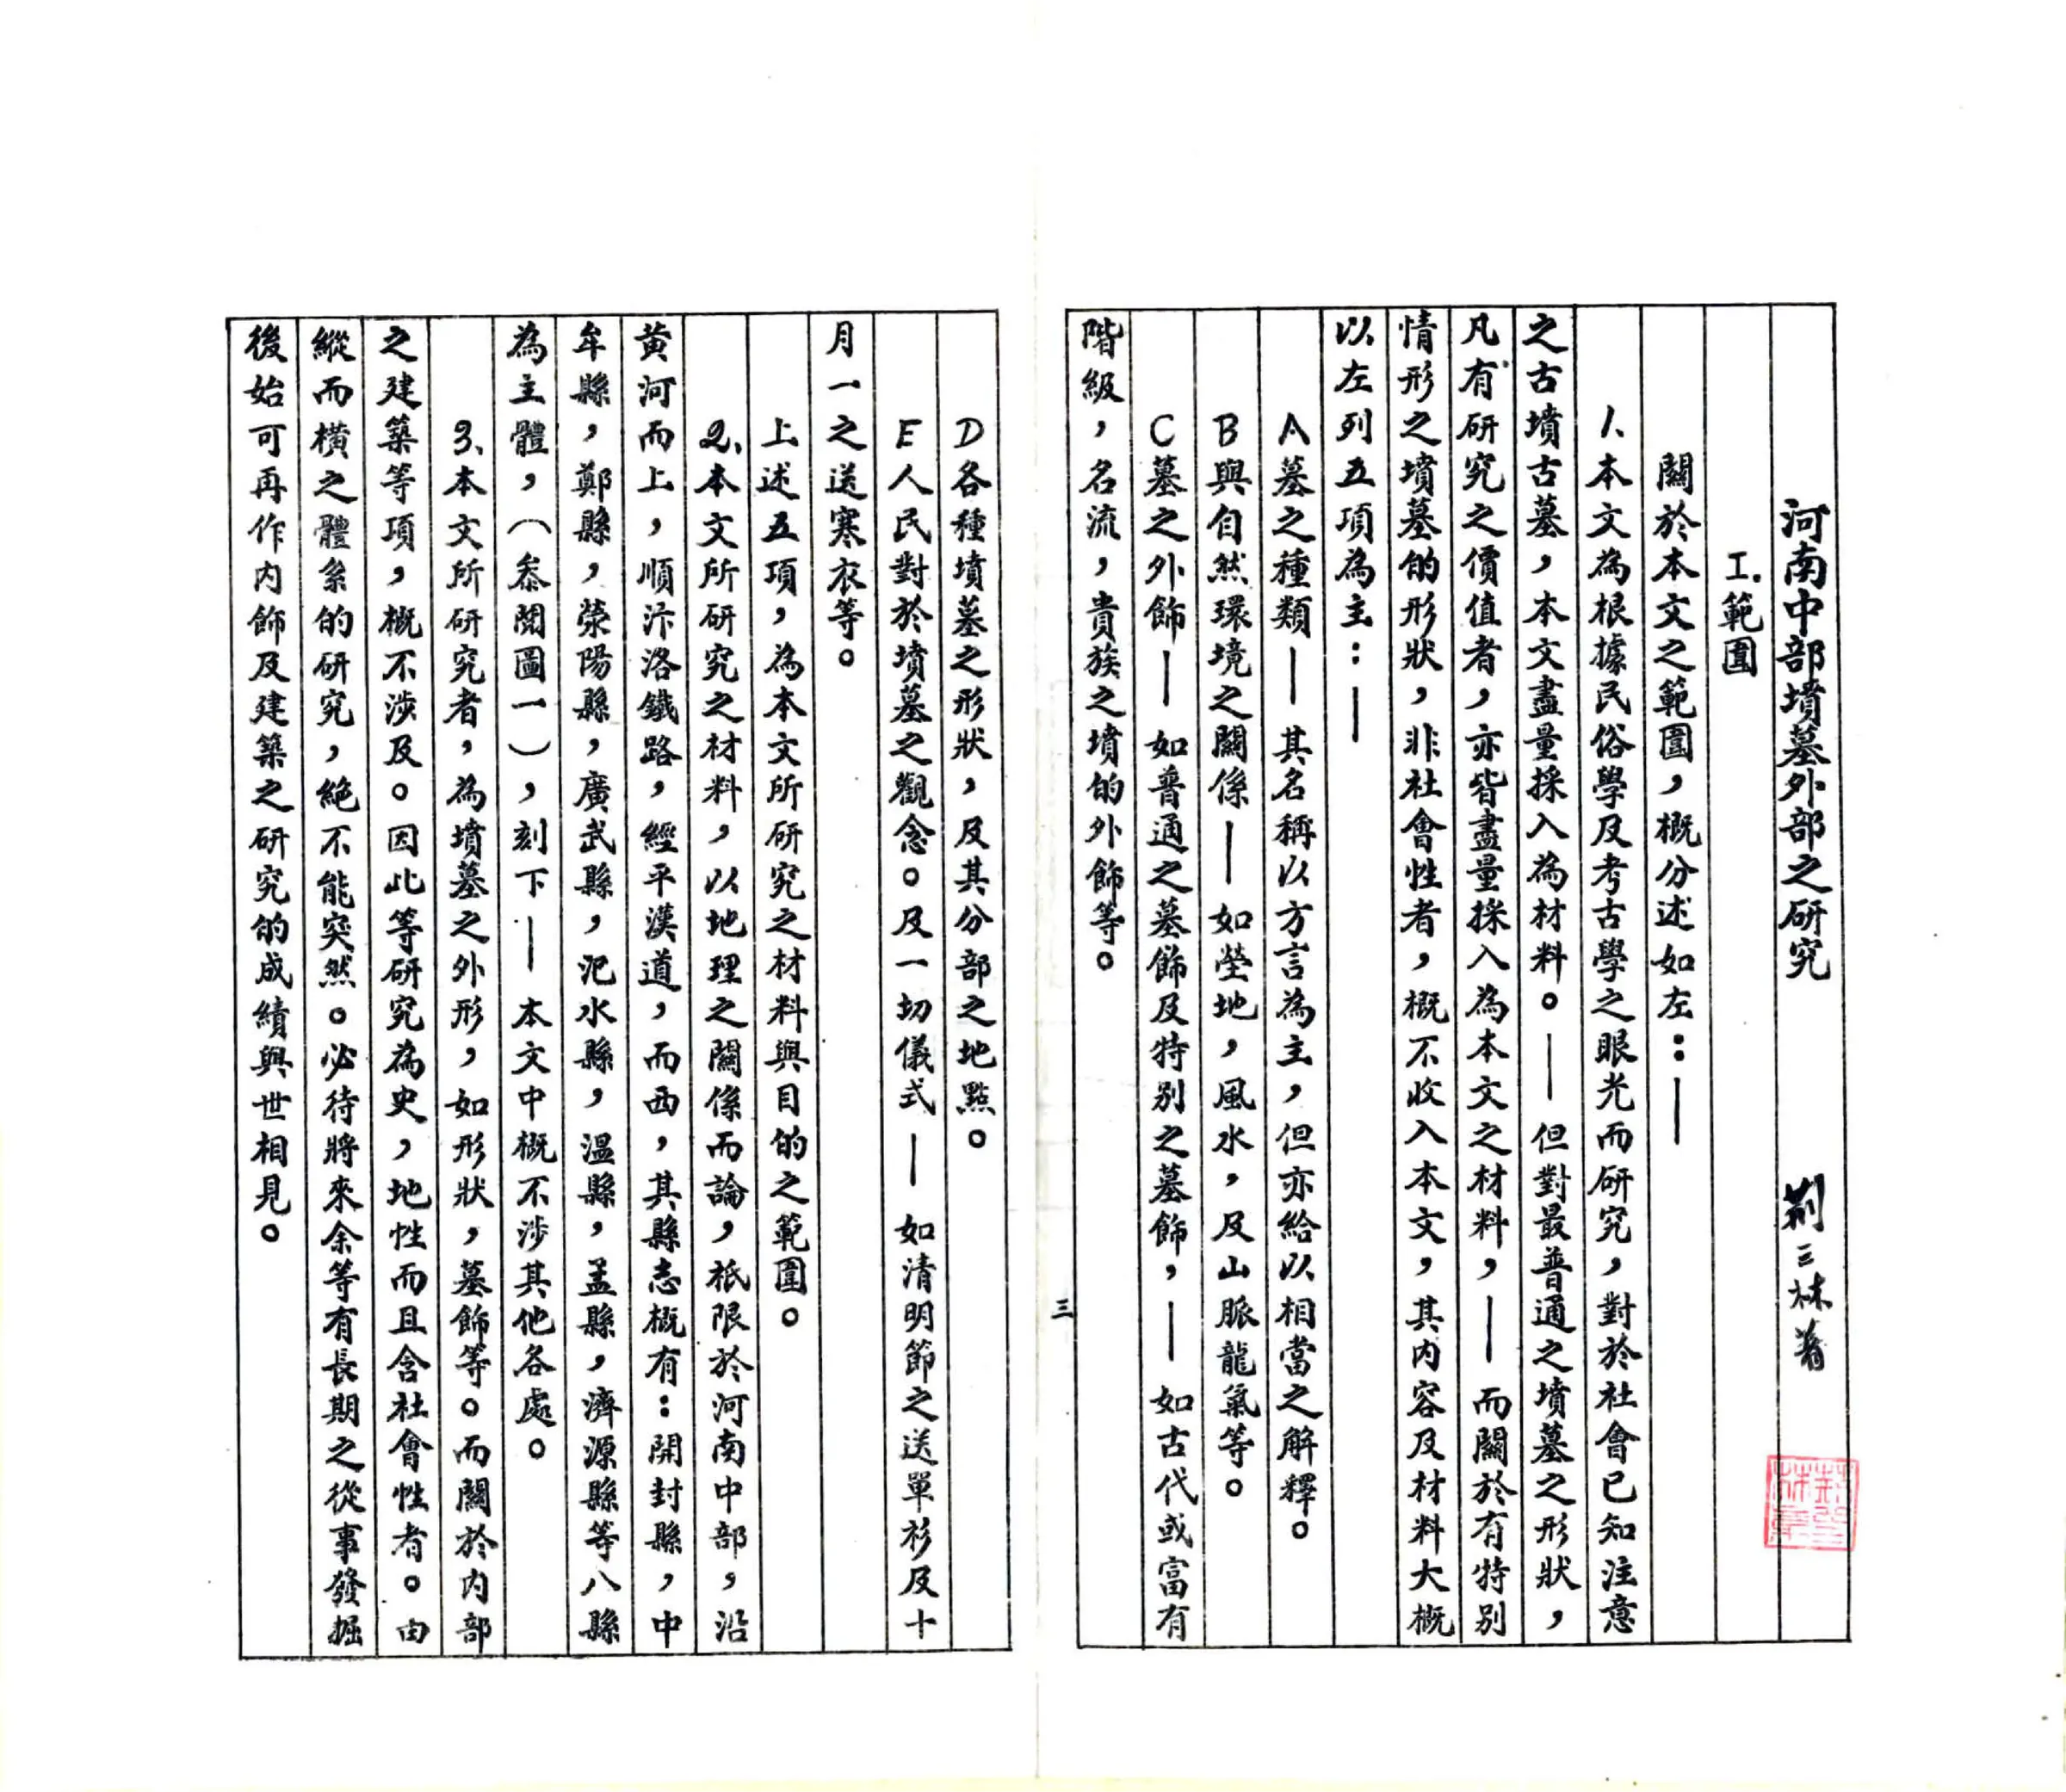 河南中部墳墓外部之研究　荊三林著
I.範圍
關於本文之範圍，概分述如左：——
1.本文為根據民俗學及考古學之眼光而研究，對於社會已知注意
之古墳古墓，本文盡量採入為材料。——但對最普通之墳墓之形狀，
凡有研究之價值者，亦皆盡量採入為本文之材料，——而關於有特別
情形之墳墓的形狀，非社會性者，概不收入本文，其內容及材料大概
以左列五項為主：——
A墓之種類——其名稱以方言為主，但亦給以相當之解釋。
B與自然環境之關係——如塋地，風水，及山脈龍氣等。
C墓之外飾——如普通之墓飾及特別之墓飾，——如古代或富有
階級，名流，貴族之墳的外飾等。
三
D各種墳墓之形狀，及其分部之地點。
E人民對於墳墓之觀念。及一切儀式——如清明節之送單衫及十
月一之送寒衣等。
上述五項，為本文所研究之材料與目的之範圍。
2.本文所研究之材料，以地理之關係而論，祇限於河南中部，沿
黃河而上，順汴洛鐵路，經平漢道，而西，其縣志概有：開封縣，中
牟縣，鄭縣，滎陽縣，廣武縣，汜水縣，溫縣，孟縣，濟源縣等八縣
為主體，（叅閱圖一），刻下——本文中概不涉其他各處。
3.本文所研究者，為墳墓之外形，如形狀，墓飾等。而關於內部
之建築等項，概不涉及。因此等研究為史，地性而且含社會性者。由
縱而橫之體系的研究，絕不能突然。必待將來余等有長期之從事發掘
後始可再作內飾及建築之研究的成績與世相見。